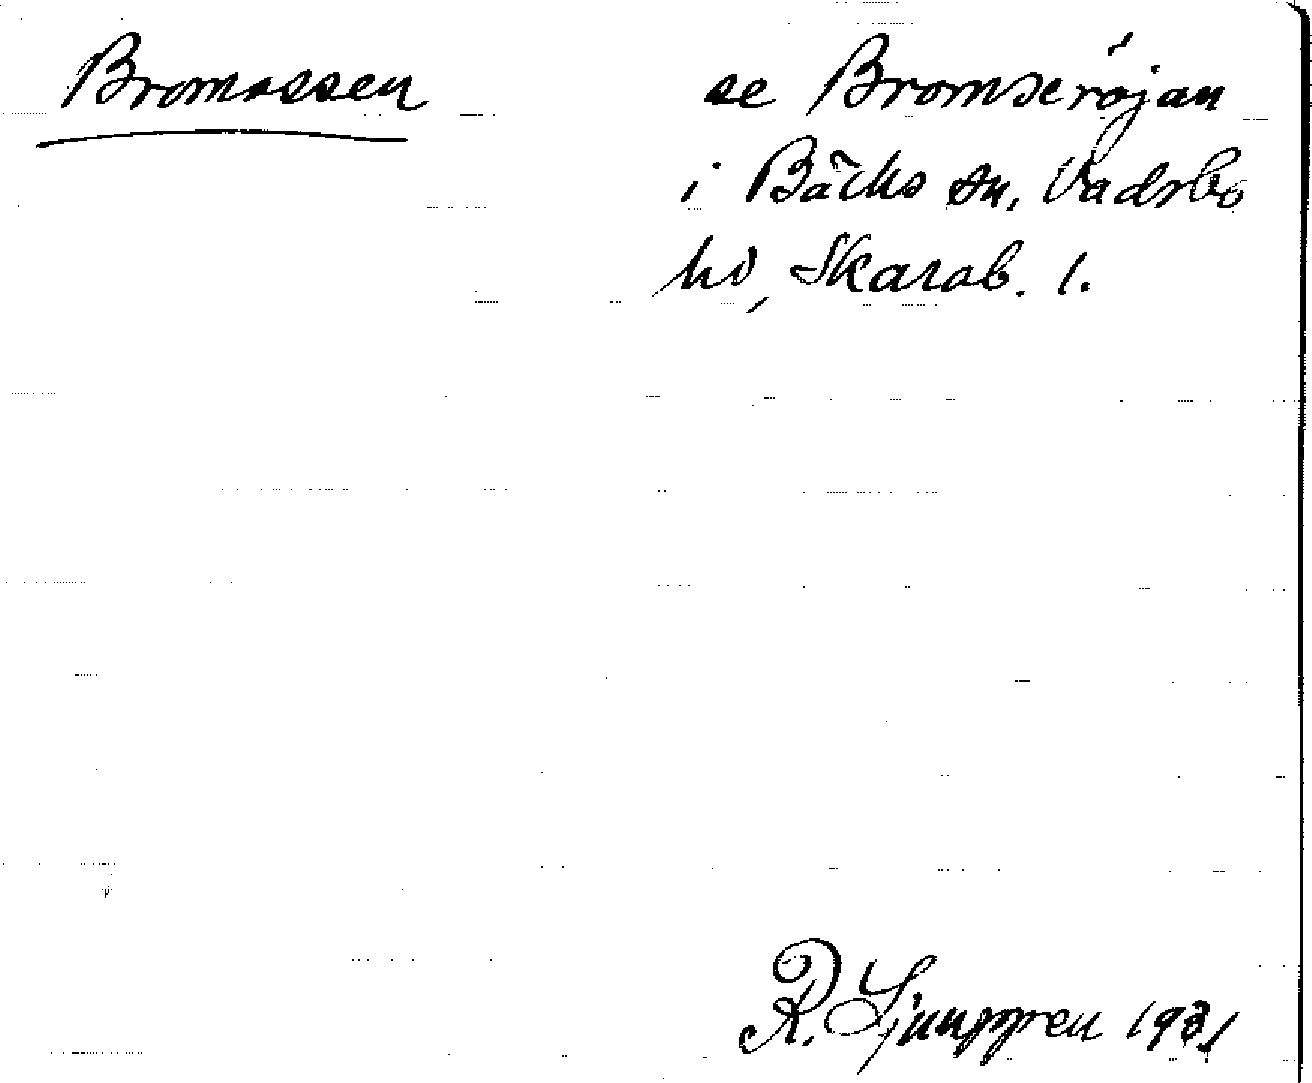 Bromossen
se Bromseröjan
i Bäcks sn, Vadsbo
hd, Skarab. l.
R. Ljunggren 1931